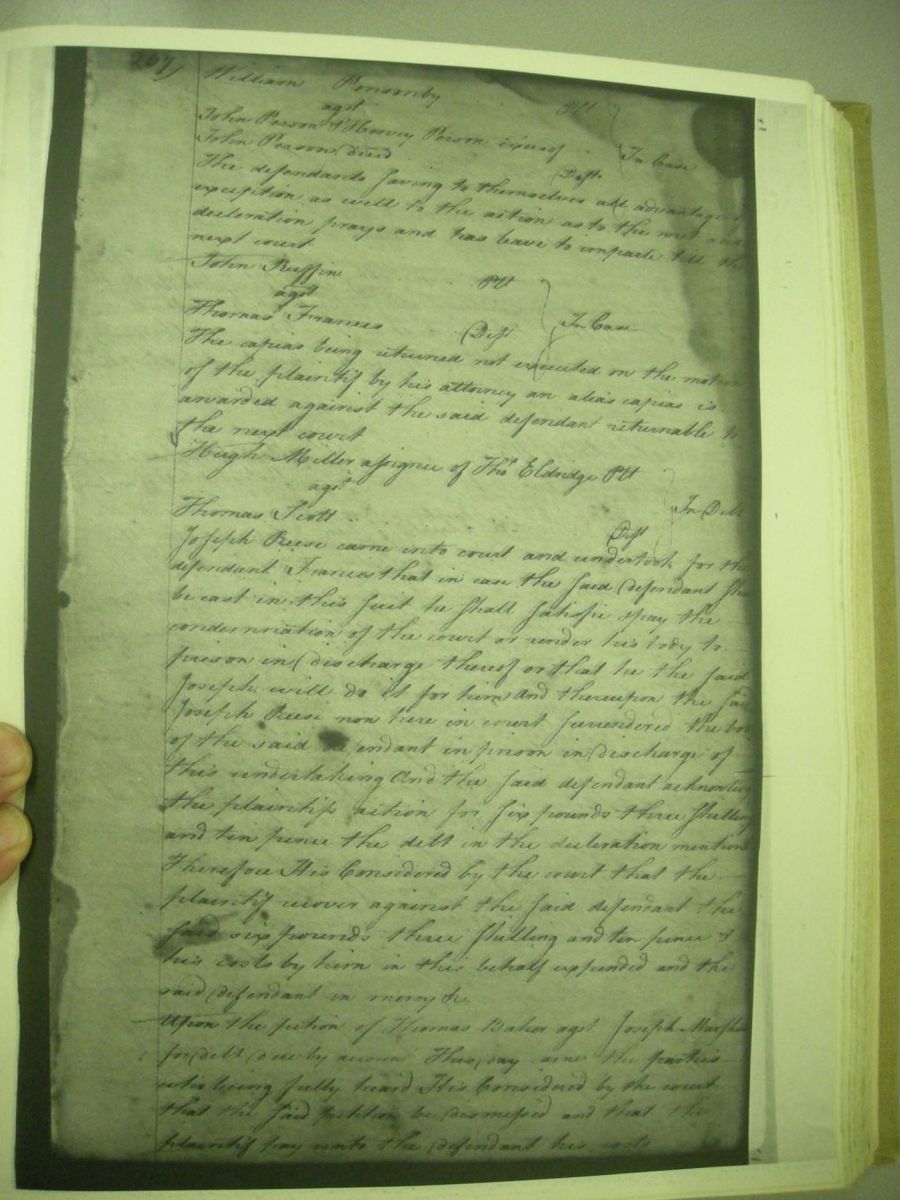 207
William Ponsonby Plt
agst
John Person & Harvey Person exers of In Case
John Pearson dec'd Deft
The defendants saving to themselves all advantages
exception as well to the action as to the writ and
declaration prays and has leave to imparle till the
next court
John Ruffin Plt
agst
Thomas Frances Deft In Case
The capias being returned not executed on the motion
of the plaintif by his attorney an alias capias is
awarded against the said defendant returnable to
the next court
Hugh Miller assignee of Thos Eldridge Plt
agst In Debt
Thomas Scott Deft
Joseph Reese came into court and undertook for the
defendant Frances that in case the said defendant shall
be cast in this suit he shall satisfie & pay the
condemnation of the court or render his body to
prison in discharge thereof or that he the said
Joseph will do it for him And thereupon the said
Joseph Reese now here in court surrendered the bo
of the said defendant in prison in discharge of
this undertaking And the said defendant acknowledg
the plaintifs action for six pounds three shilling
and ten pence the debt in the declaration mention
Therefore It is Considered by the court that the
plaintif recover against the said defendant the
said six pounds three shilling and ten pence &
his costs by him in this behalf expended and the
said defendant in mercy &c.
Upon the petion of Thomas Baker agst Joseph Marsh
for debt due by This day came the parties
who being fully heard It is Considered by the court
that the said petition be dismissed and that the
plaintif pay unto the defendant his costs